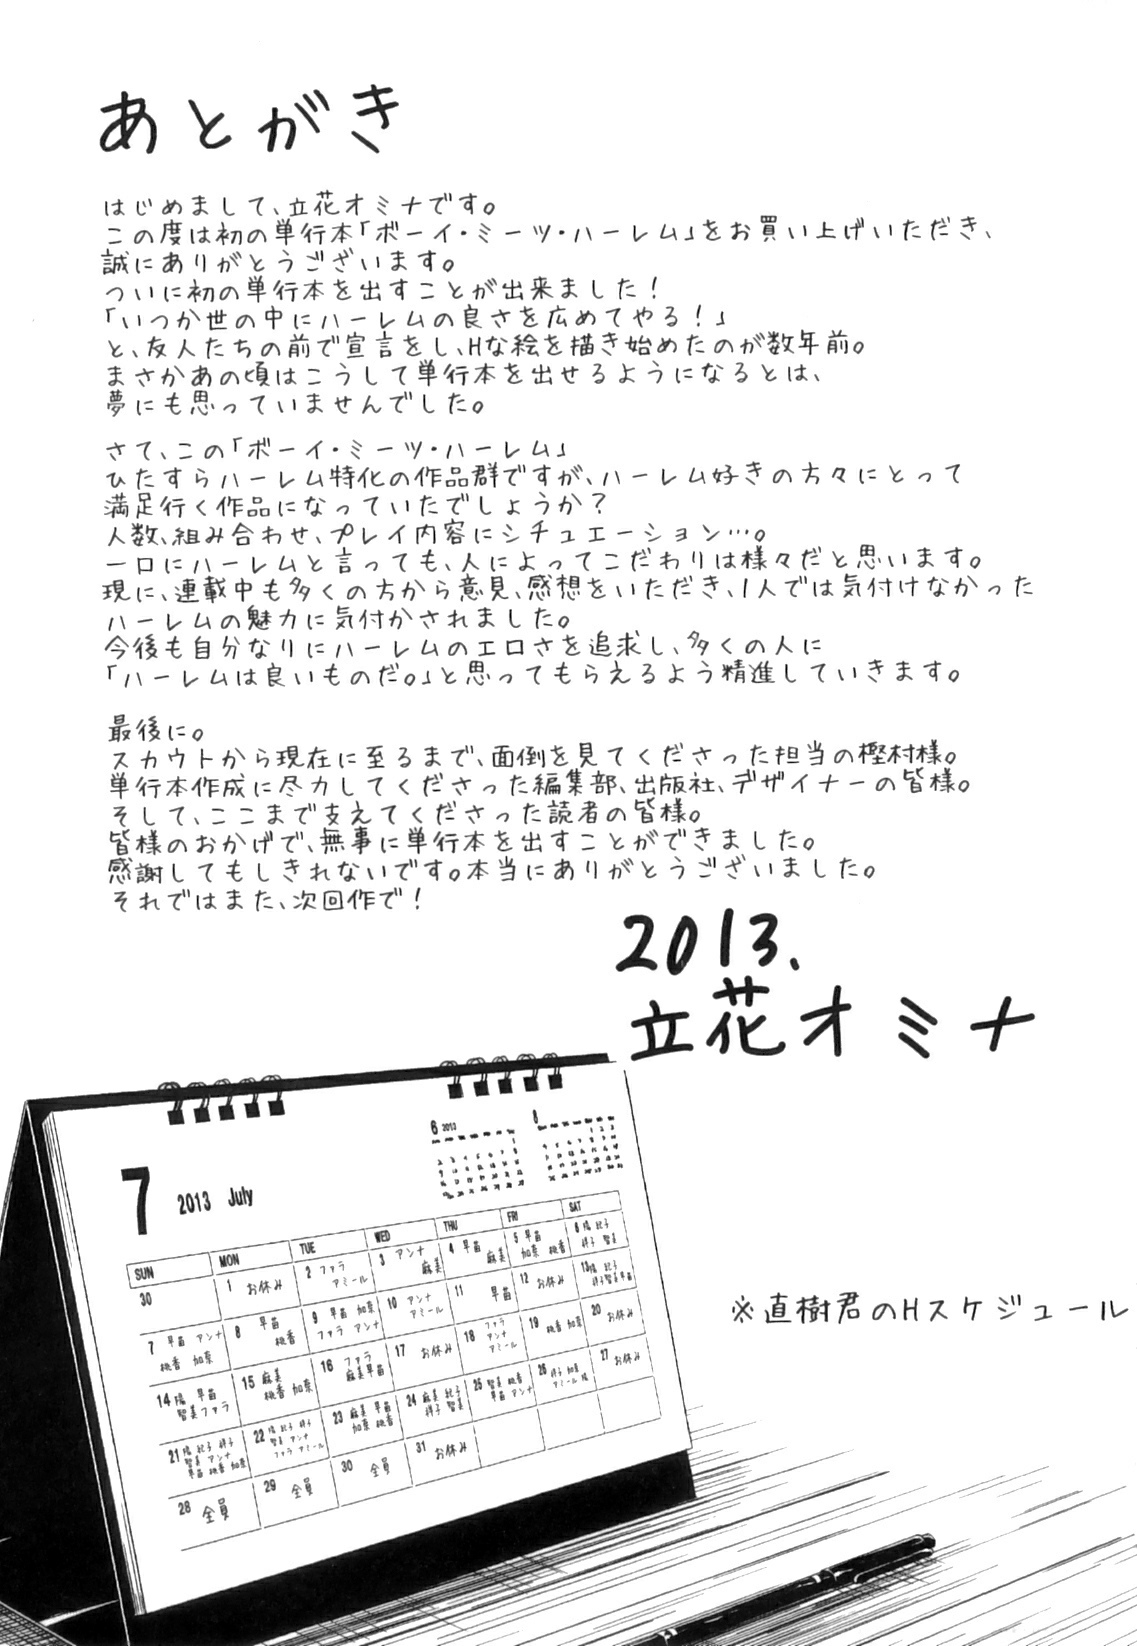 あとがき
はじめまして、立花オミナです。
この度は初の単行本「ボーイ・ミーツ・ハーレム」をお買い上げいただき、
誠にありがとうございます。
ついに初の単行本を出すことが出来ました！
「いつか世の中にハーレムの良さを広めてやる！」
と、友人たちの前で宣言をし、Hな絵を描き始めたのが数年前。
まさかあの頃はこうして単行本を出せるようになるとは、
夢にも思っていませんでした。
さて、この「ボーイ・ミーツ・ハーレム」
ひたすらハーレム特化の作品群ですが、ハーレム好きの方々にとって
満足行く作品になっていたでしょうか？
人数、組み合わせ、プレイ内容にシチュエーション…。
一口にハーレムと言っても、人によってこだわりは様々だと思います。
現に、連載中も多くの方から意見、感想をいただき、1人では気付けなかった
ハーレムの魅力に気付かされました。
今後も自分なりにハーレムのエロさを追求し、多くの人に
「ハーレムは良いものだ。」と思ってもらえるよう精進していきます。
最後に。
スカウトから現在に至るまで、面倒を見てくださった担当の樫村様。
単行本作成に尽力してくださった編集部、出版社、デザイナーの皆様。
そして、ここまで支えてくださった読者の皆様。
皆様のおかげで、無事に単行本を出すことができました。
感謝してもしきれないです。本当にありがとうございました。
それではまた、次回作で！
2013.
立花オミナ
※直樹君のHスケジュール
7 2013 July
6 2013
8
SUN MON TUE WED THU FRI SAT
30
1 お休み
2 ファラ
アミール
3 アンナ
麻美
4 早苗
麻美
5 早苗
加奈 桃香
6
7 早苗 アンナ
桃香 加奈
8 早苗
桃香
9 早苗 加奈
ファラ アンナ
10 アンナ
アミール
11 早苗
12 お休み
13
14 早苗
智美 ファラ
15 麻美
桃香 加奈
16 ファラ
麻美 早苗
17 お休み
18 ファラ
アンナ
アミール
19 桃香 加奈
20 お休み
21
智美 アンナ
早苗 桃香 加奈
22
智美 アンナ
ファラ アミール
23 麻美 早苗
加奈 桃香
24
25 智美 桃香
早苗 アンナ
26
27 お休み
28 全員
29 全員
30 全員
31 お休み